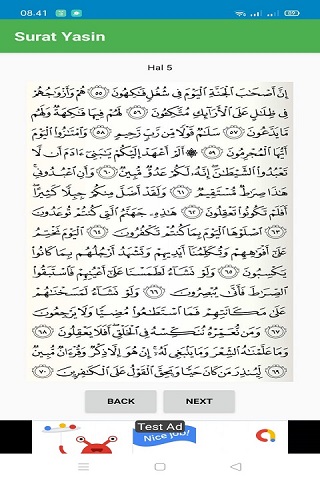 08.41
Surat Yasin
Hal 5
إِنَّ أَصْحَٰبَ ٱلْجَنَّةِ ٱلْيَوْمَ فِى شُغُلٍ فَٰكِهُونَ ٥٥ هُمْ وَأَزْوَٰجُهُمْ
فِى ظِلَٰلٍ عَلَى ٱلْأَرَآئِكِ مُتَّكِـُٔونَ ٥٦ لَهُمْ فِيهَا فَٰكِهَةٌ وَلَهُم
مَّا يَدَّعُونَ ٥٧ سَلَٰمٌ قَوْلًا مِّن رَّبٍّ رَّحِيمٍ ٥٨ وَٱمْتَٰزُوا۟ ٱلْيَوْمَ
أَيُّهَا ٱلْمُجْرِمُونَ ٥٩ ۞ أَلَمْ أَعْهَدْ إِلَيْكُمْ يَٰبَنِىٓ ءَادَمَ أَن لَّا
تَعْبُدُوا۟ ٱلشَّيْطَٰنَ إِنَّهُۥ لَكُمْ عَدُوٌّ مُّبِينٌ ٦٠ وَأَنِ ٱعْبُدُونِى
هَٰذَا صِرَٰطٌ مُّسْتَقِيمٌ ٦١ وَلَقَدْ أَضَلَّ مِنكُمْ جِبِلًّا كَثِيرًا
أَفَلَمْ تَكُونُوا۟ تَعْقِلُونَ ٦٢ هَٰذِهِۦ جَهَنَّمُ ٱلَّتِى كُنتُمْ تُوعَدُونَ
٦٣ ٱصْلَوْهَا ٱلْيَوْمَ بِمَا كُنتُمْ تَكْفُرُونَ ٦٤ ٱلْيَوْمَ نَخْتِمُ
عَلَىٰٓ أَفْوَٰهِهِمْ وَتُكَلِّمُنَآ أَيْدِيهِمْ وَتَشْهَدُ أَرْجُلُهُم بِمَا كَانُوا۟
يَكْسِبُونَ ٦٥ وَلَوْ نَشَآءُ لَطَمَسْنَا عَلَىٰٓ أَعْيُنِهِمْ فَٱسْتَبَقُوا۟
ٱلصِّرَٰطَ فَأَنَّىٰ يُبْصِرُونَ ٦٦ وَلَوْ نَشَآءُ لَمَسَخْنَٰهُمْ
عَلَىٰ مَكَانَتِهِمْ فَمَا ٱسْتَطَٰعُوا۟ مُضِيًّا وَلَا يَرْجِعُونَ
٦٧ وَمَن نُّعَمِّرْهُ نُنَكِّسْهُ فِى ٱلْخَلْقِ أَفَلَا يَعْقِلُونَ ٦٨
وَمَا عَلَّمْنَٰهُ ٱلشِّعْرَ وَمَا يَنۢبَغِى لَهُۥٓ إِنْ هُوَ إِلَّا ذِكْرٌ وَقُرْءَانٌ مُّبِينٌ
٦٩ لِّيُنذِرَ مَن كَانَ حَيًّا وَيَحِقَّ ٱلْقَوْلُ عَلَى ٱلْكَٰفِرِينَ ٧٠
BACK NEXT
Test Ad
Nice job!